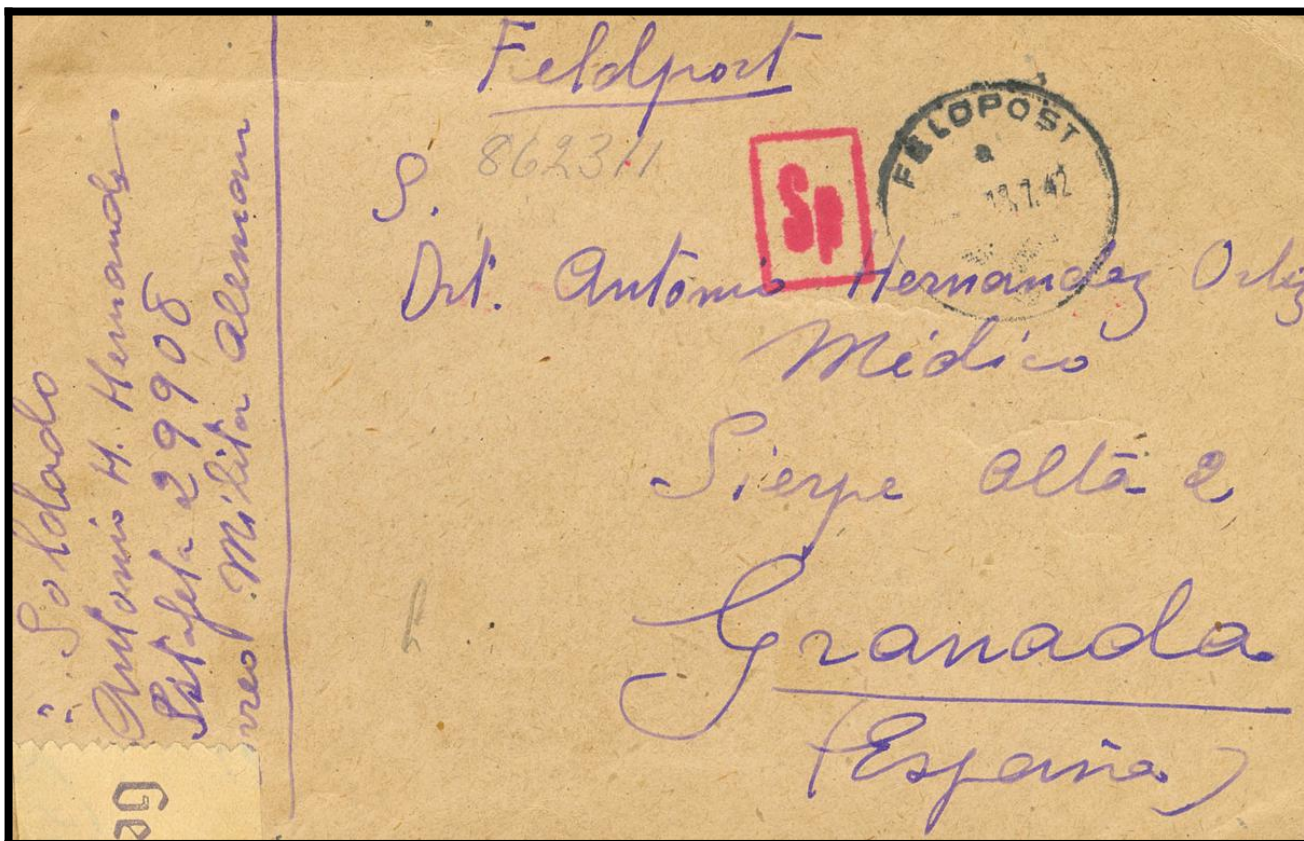 Feldport
862311
Sp
FELDPOST
a
18.7.42
S.
Drt. Antonio Hernandez Ortiz
Médico
Sierpe alta 2
Granada
(España)
Soldado
Antonio H. Hernandez
Estafeta 29908
reo Militar Aleman
Ge